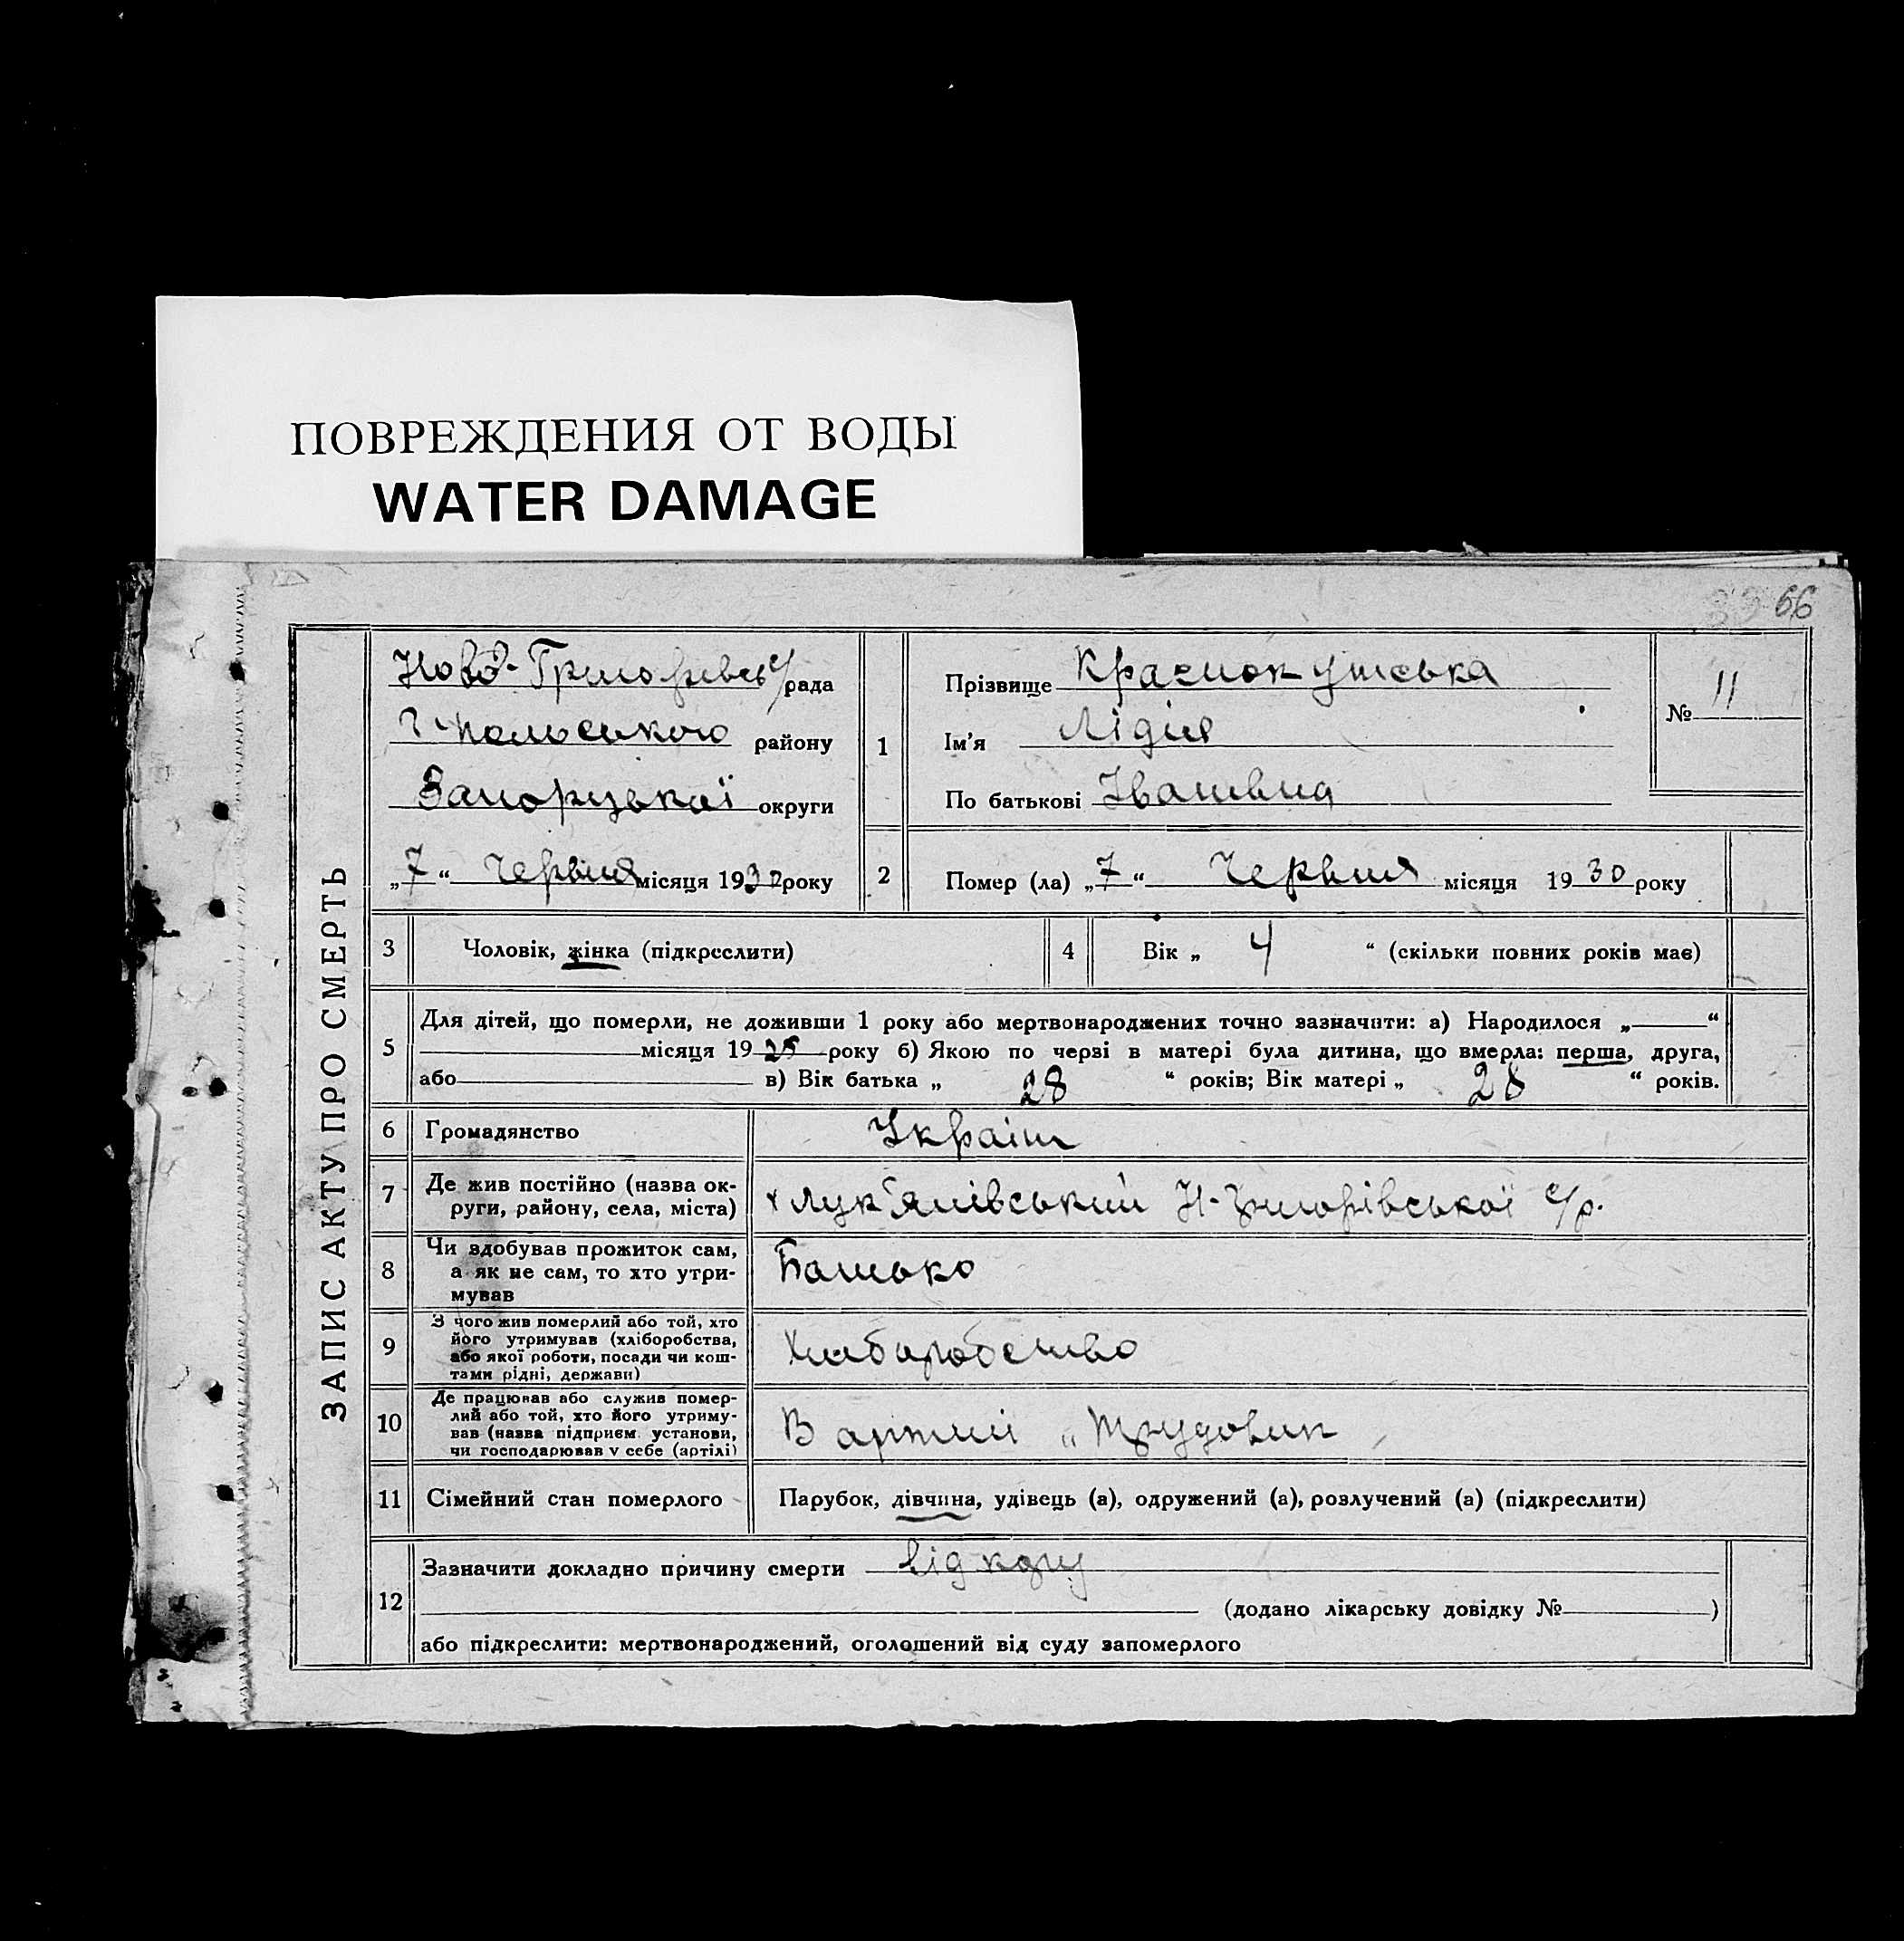 ПОВРЕЖДЕНИЯ ОТ ВОДЫ
WATER DAMAGE
66
ЗАПИС АКТУ ПРО СМЕРТЬ
рада
району
округи
„7“ Червня місяця 1930 року
1
Прізвище
Ім'я Лідія
По батькові Іванівна
№ 11
2
Помер (ла) „7“ Червня місяця 1930 року
3
Чоловік, жінка (підкреслити)
4
Вік „ 4 “ (скільки повних років має)
5
Для дітей, що померли, не доживши 1 року або мертвонароджених точно зазначити: а) Народилося „ “
місяця 1925 року б) Якою по черві в матері була дитина, що вмерла: перша, друга,
або в) Вік батька „ 28 “ років; Вік матері „ 28 “ років.
6
Громадянство
Україн
7
Де жив постійно (назва ок-
руги, району, села, міста)
х Лук'янівський Н-Григорівської с/р.
8
Чи здобував прожиток сам,
а як не сам, то хто утри-
мував
Батько
9
З чого жив померлий або той, хто
його утримував (хліборобства,
або якої роботи, посади чи кош-
тами рідні, держави)
Хліборобство
10
Де працював або служив помер-
лий або той, хто його утриму-
вав (назва підприєм. установи,
чи господарював у себе (артілі)
В артілі „Трудовик
11
Сімейний стан померлого
Парубок, дівчина, удівець (а), одружений (а), розлучений (а) (підкреслити)
12
Зазначити докладно причину смерти від кору
(додано лікарську довідку № )
або підкреслити: мертвонароджений, оголошений від суду запомерлого